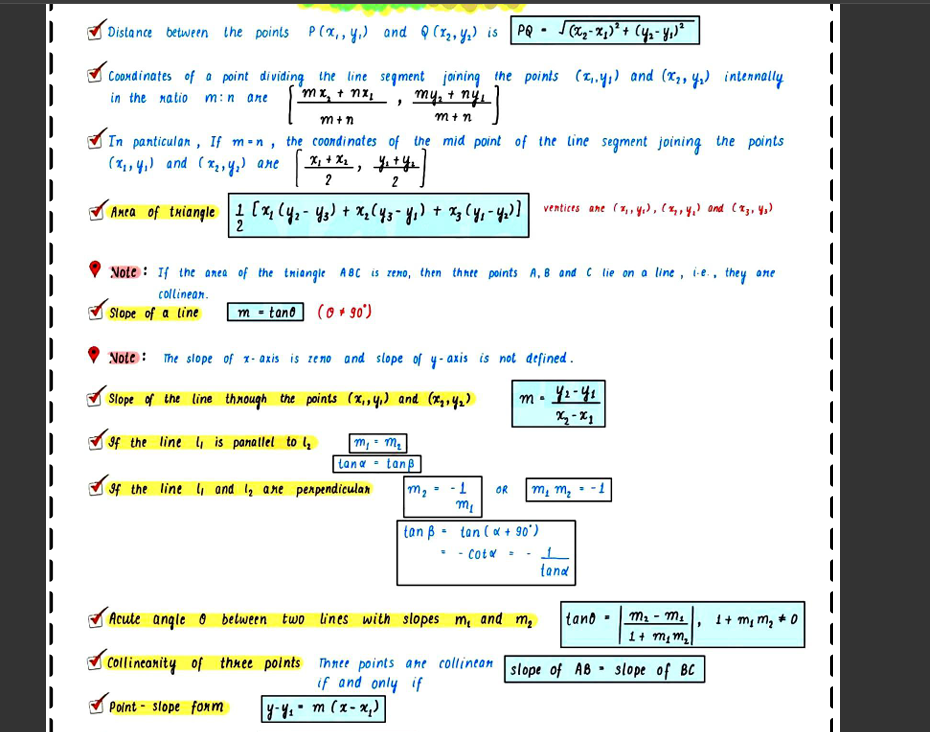 Distance between the points P(x₁, y₁) and Q(x₂, y₂) is PQ = √(x₂-x₁)² + (y₂-y₁)²
Coordinates of a point dividing the line segment joining the points (x₁, y₁) and (x₂, y₂) internally
in the ratio m:n are [(mx₂ + nx₁)/(m+n), (my₂ + ny₁)/(m+n)]
In particular, If m=n, the coordinates of the mid point of the line segment joining the points
(x₁, y₁) and (x₂, y₂) are [(x₁ + x₂)/2, (y₁ + y₂)/2]
Area of triangle 1/2 [x₁(y₂ - y₃) + x₂(y₃ - y₁) + x₃(y₁ - y₂)] vertices are (x₁, y₁), (x₂, y₂) and (x₃, y₃)
Note: If the area of the triangle ABC is zero, then three points A, B and C lie on a line, i.e., they are
collinear.
Slope of a line m = tanθ (θ ≠ 90°)
Note: The slope of x-axis is zero and slope of y-axis is not defined.
Slope of the line through the points (x₁, y₁) and (x₂, y₂) m = (y₂ - y₁)/(x₂ - x₁)
If the line l₁ is parallel to l₂ m₁ = m₂
tanα = tanβ
If the line l₁ and l₂ are perpendicular m₂ = -1/m₁ OR m₁ m₂ = -1
tan β = tan (α + 90°)
= - cotα = - 1/tanα
Acute angle θ between two lines with slopes m₁ and m₂ tanθ = |(m₂ - m₁)/(1 + m₁m₂)|, 1 + m₁m₂ ≠ 0
Collinearity of three points Three points are collinear slope of AB = slope of BC
if and only if
Point-slope form y-y₁ = m (x-x₁)